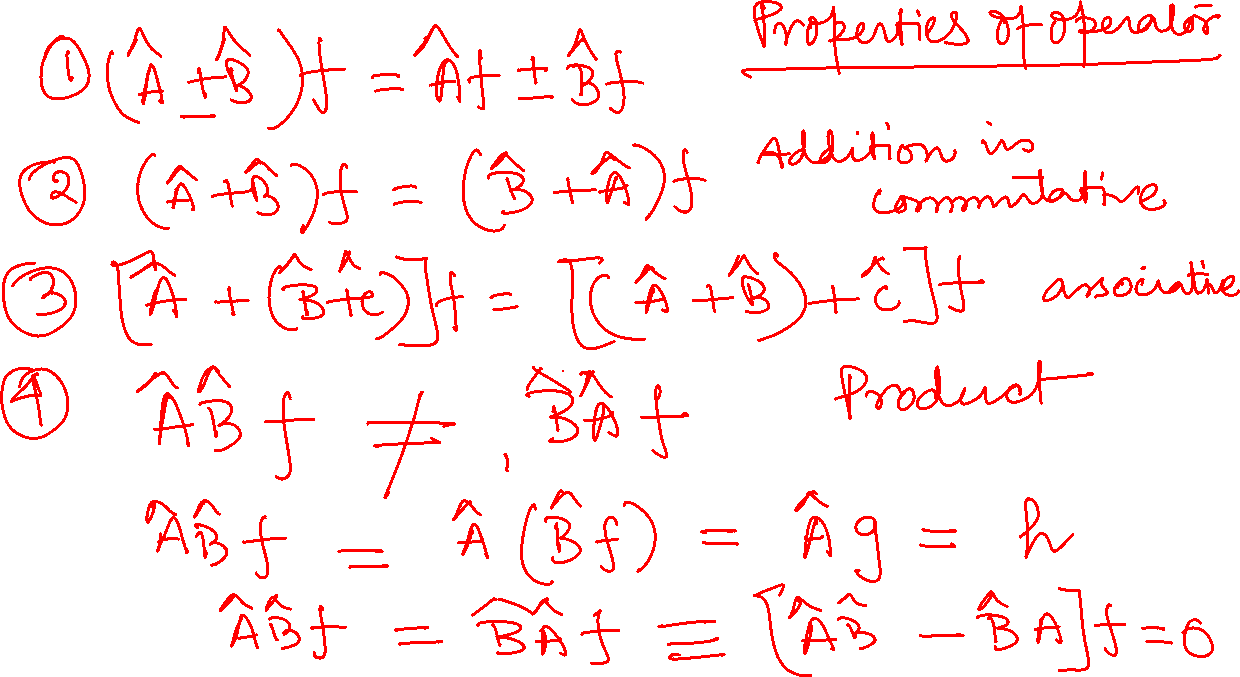 Properties of operator
① (Â ± B̂)f = Âf ± B̂f
② (Â + B̂)f = (B̂ + Â)f Addition is
commutative
③ [Â + (B̂ + ĉ)]f = [(Â + B̂) + ĉ]f associative
④ ÂB̂ f ≠ B̂Â f Product
ÂB̂f = Â(B̂f) = Âg = h
ÂB̂f = B̂Âf ≡ [ÂB̂ − B̂A]f = 0